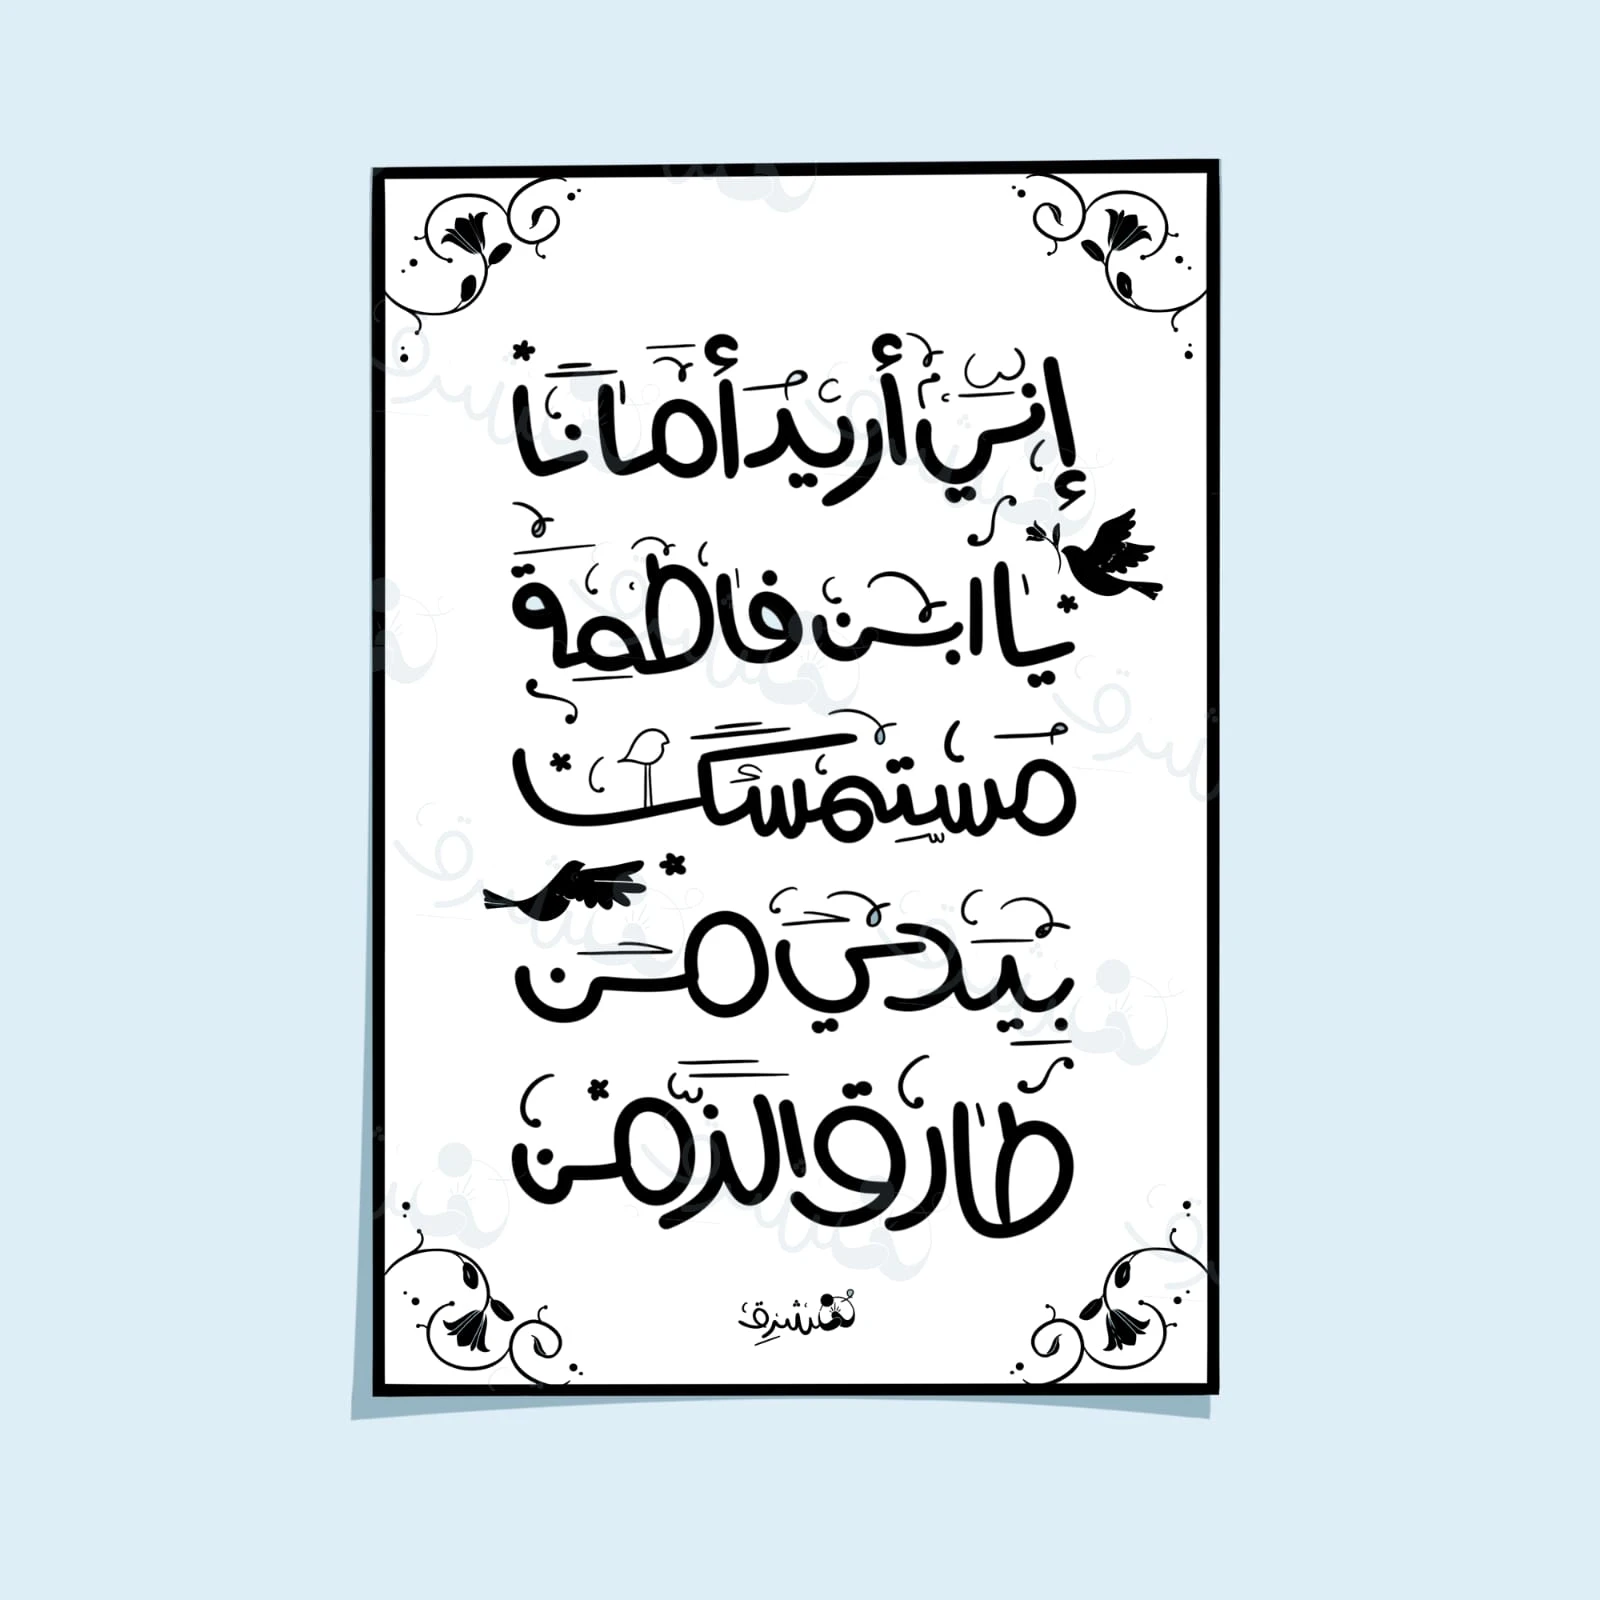 إنّي أريدُ أمانًا
يا ابن فاطمة
مُستمسكًا
بيدي من
طارق الزّمن
مشرق